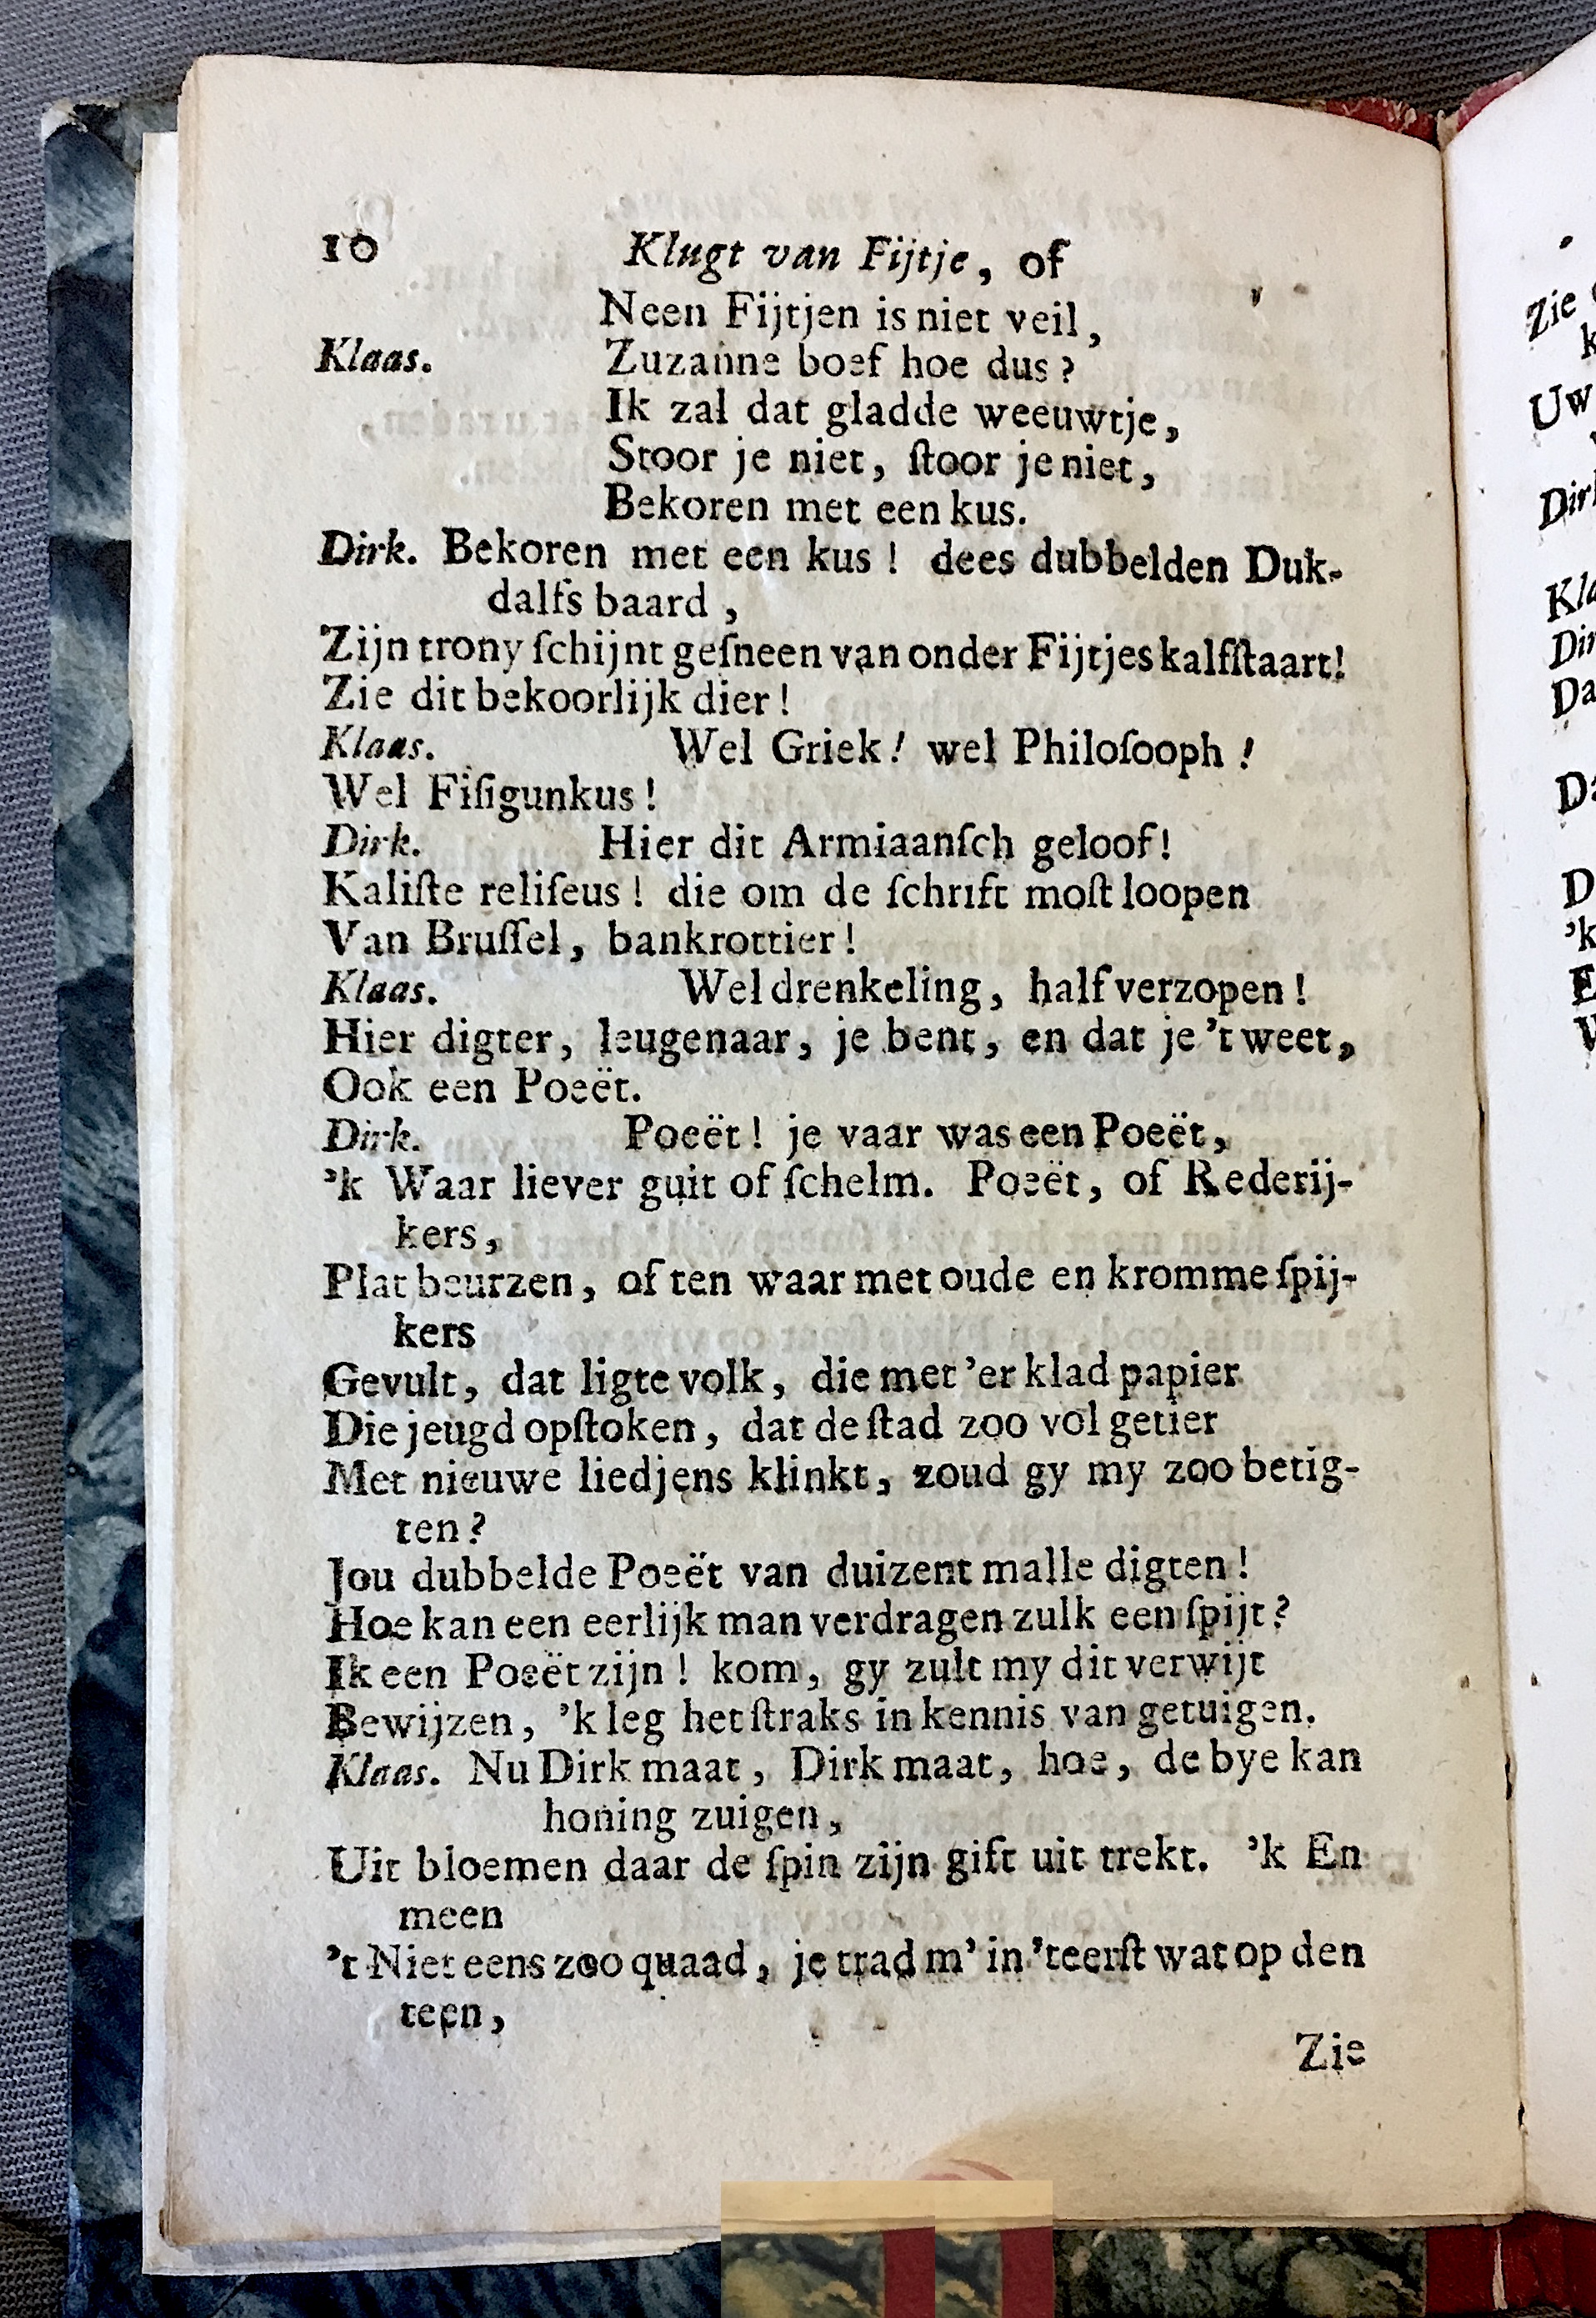 10 Klugt van Fijtje, of
Neen Fijtjen is niet veil,
Klaas. Zuzanne boef hoe dus?
Ik zal dat gladde weeuwtje,
Stoor je niet, ſtoor je niet,
Bekoren met een kus.
Dirk. Bekoren met een kus! dees dubbelden Duk-
dalfs baard,
Zijn trony ſchijnt geſneen van onder Fijtjes kalfſtaart!
Zie dit bekoorlijk dier!
Klaas. Wel Griek! wel Philoſooph!
Wel Fiſigunkus!
Dirk. Hier dit Armiaanſch geloof!
Kaliſte reliſeus! die om de ſchrift moſt loopen
Van Bruſſel, bankrottier!
Klaas. Wel drenkeling, half verzopen!
Hier digter, leugenaar, je bent, en dat je 't weet,
Ook een Poeët.
Dirk. Poeët! je vaar was een Poeët,
'k Waar liever guit of ſchelm. Poeët, of Rederij-
kers,
Plat beurzen, of ten waar met oude en kromme ſpij-
kers
Gevult, dat ligte volk, die met 'er klad papier
Die jeugd opſtoken, dat de ſtad zoo vol getier
Met nieuwe liedjens klinkt, zoud gy my zoo betig-
ten?
Jou dubbelde Poeët van duizent malle digten!
Hoe kan een eerlijk man verdragen zulk een ſpijt?
Ik een Poeët zijn! kom, gy zult my dit verwijt
Bewijzen, 'k leg het ſtraks in kennis van getuigen.
Klaas. Nu Dirk maat, Dirk maat, hoe, de bye kan
honing zuigen,
Uit bloemen daar de ſpin zijn gift uit trekt. 'k En
meen
't Niet eens zoo quaad, je trad m' in 'teerſt wat op den
teen,
Zie
Zie
Uw
Da